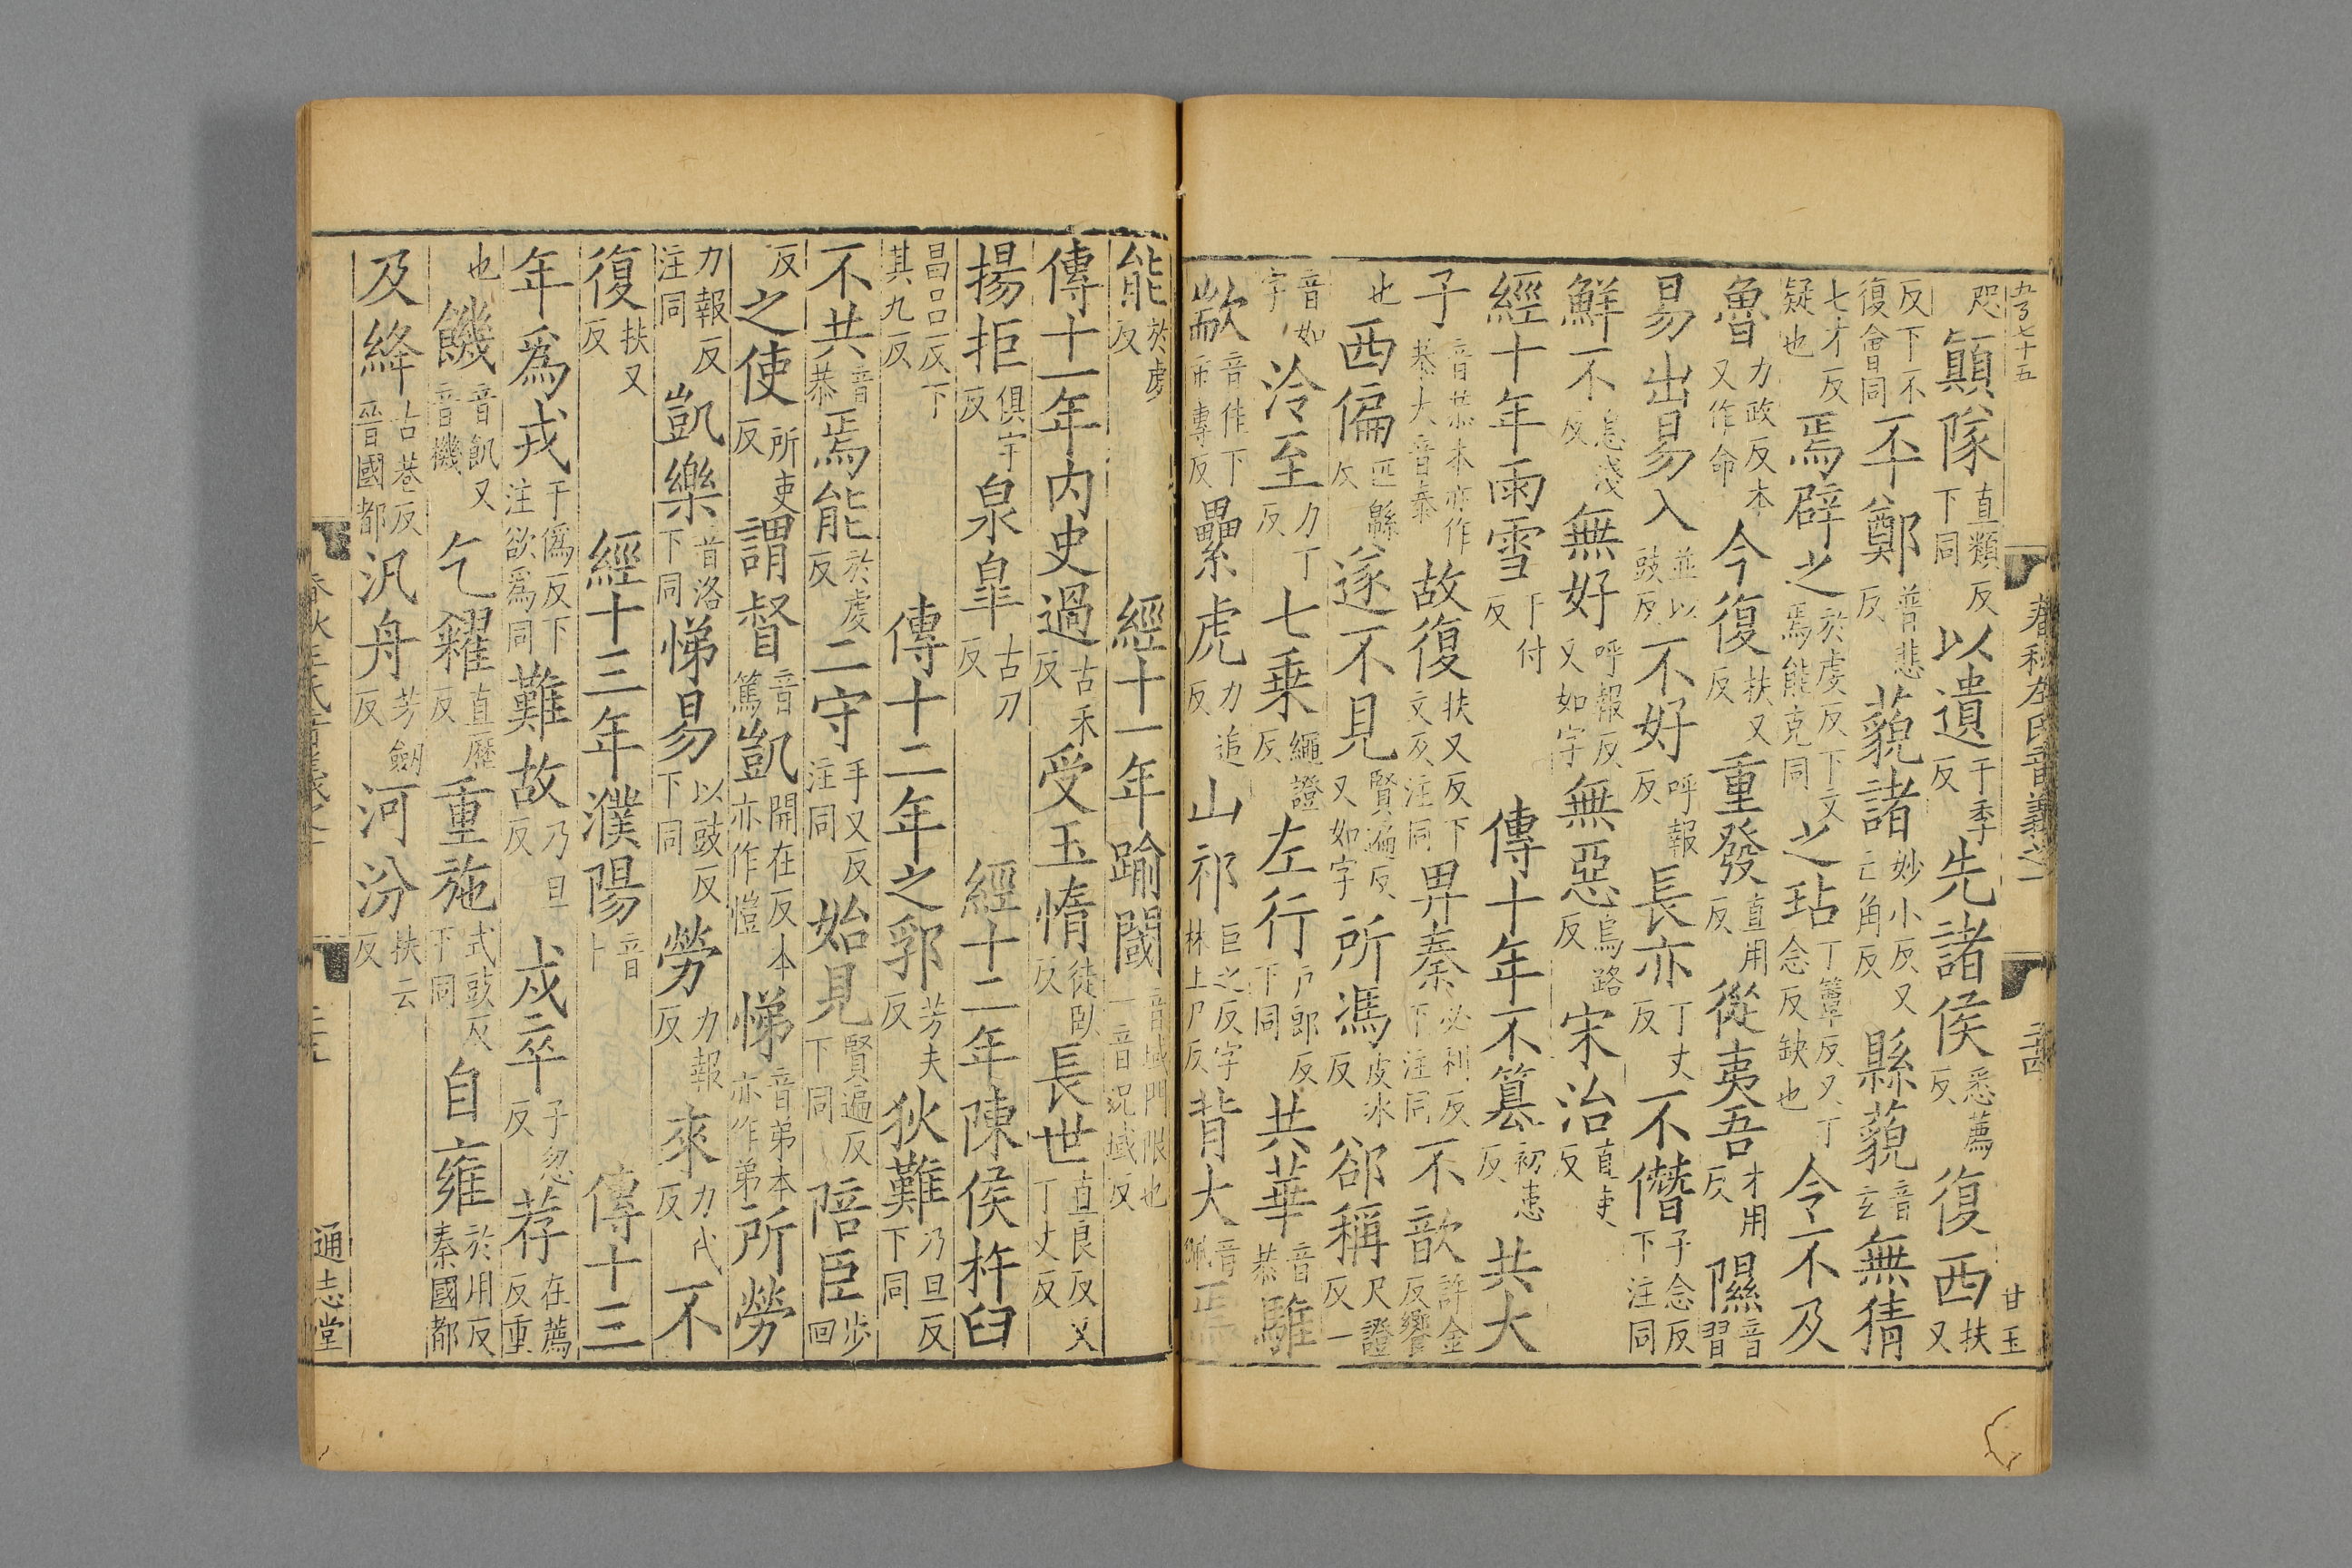 七十五
春秋左氏音義之一
甘玉
咫顚隊直類反下同以遺于季反先諸侯悉薦反復西扶又
反下不復會同不鄭普悲反藐諸妙小反又亡角反縣藐音玄無猜
七才反疑也焉辟之於虔反下文焉能克同之玷丁簟反又丁念反缺也今不及
魯力政反本又作命今復扶又反重發直用反從夷吾才用反隰音習
易出易入並以豉反不好呼報反長亦丁丈反不僭子念反下注同
鮮不息淺反無好呼報反又如字無惡烏路反宋治直吏反
經十年雨雪于付反 傳十年不篡初患反共大
子音恭本亦作恭大音泰故復扶又反下文及注同畀秦必利反下注同不歆許金反饗
也西偏匹緜反遂不見賢遍反又如字所馮皮冰反郤稱尺證反一
音如字泠至力丁反七乘繩證反左行戶郎反下同共華音恭騅
歂音隹下市專反纍虎力追反山祁巨之反字林上尸反背大音佩焉
能於虔反 經十一年踰閾音域門限也一音況域反
傳十一年内史過古禾反受玉惰徒臥反長世直良反又丁丈反
揚拒俱宇反泉皐古刀反 經十二年陳侯杵臼
昌呂反下其九反 傳十二年之郛芳夫反狄難乃旦反下同
不共音恭焉能於虔反二守手又反注同始見賢遍反下同陪臣步回
反之使所吏反謂督音篤凱開在反本亦作愷悌音弟本亦作弟所勞
力報反注同凱樂音洛下同悌易以豉反下同勞力報反來力代反不
復扶又反 經十三年濮陽音卜 傳十三
年爲戎于僞反下注欲爲同難故乃旦反戍卒子忽反荐在薦反重
也饑音飢又音機乞糴直歷反重施式豉反下同自雍於用反秦國都
及絳古巷反晉國都汎舟芳劒反河汾扶云反
春秋左氏音義之一
通志堂